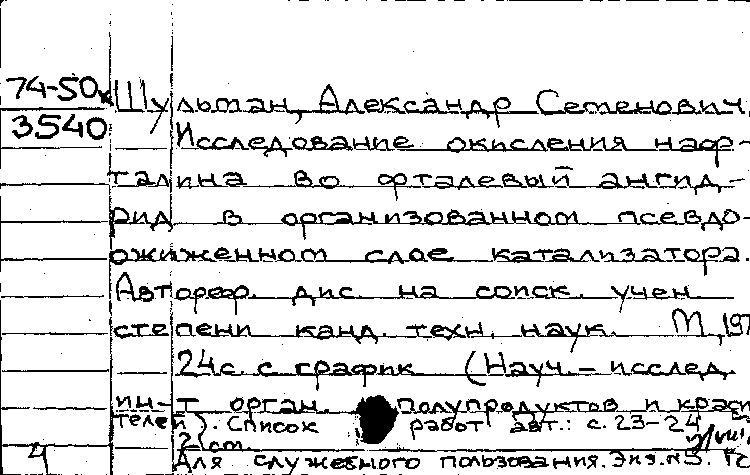 74-50к Шульман, Александр Семенович
3540
Исследование окисления наф-
талина во фталевый ангид-
рид в организованном псевдо-
ожиженном слое катализатора.
Автореф. дис. на соиск. учен.
степени канд. техн. наук. М., 197
24с. с график (Науч.-исслед.
ин-т орган. полупродуктов и краси
телей). Список работ авт.: с. 23-24
Для служебного пользования. Экз. №5.